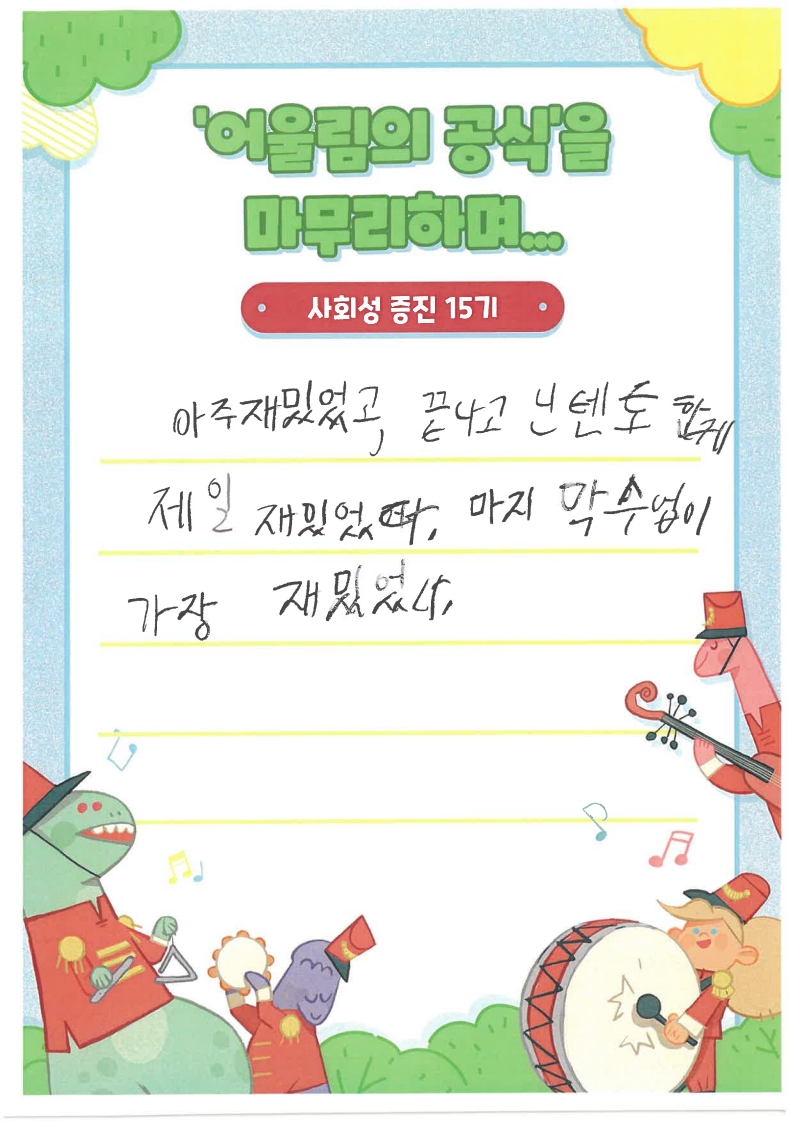 '어울림의 공식'을
마무리하며...
사회성 증진 15기
아주재밌었고, 끝나고 닌텐도 한게
제일 재밌었다, 마지막수업이
가장 재밌었다,